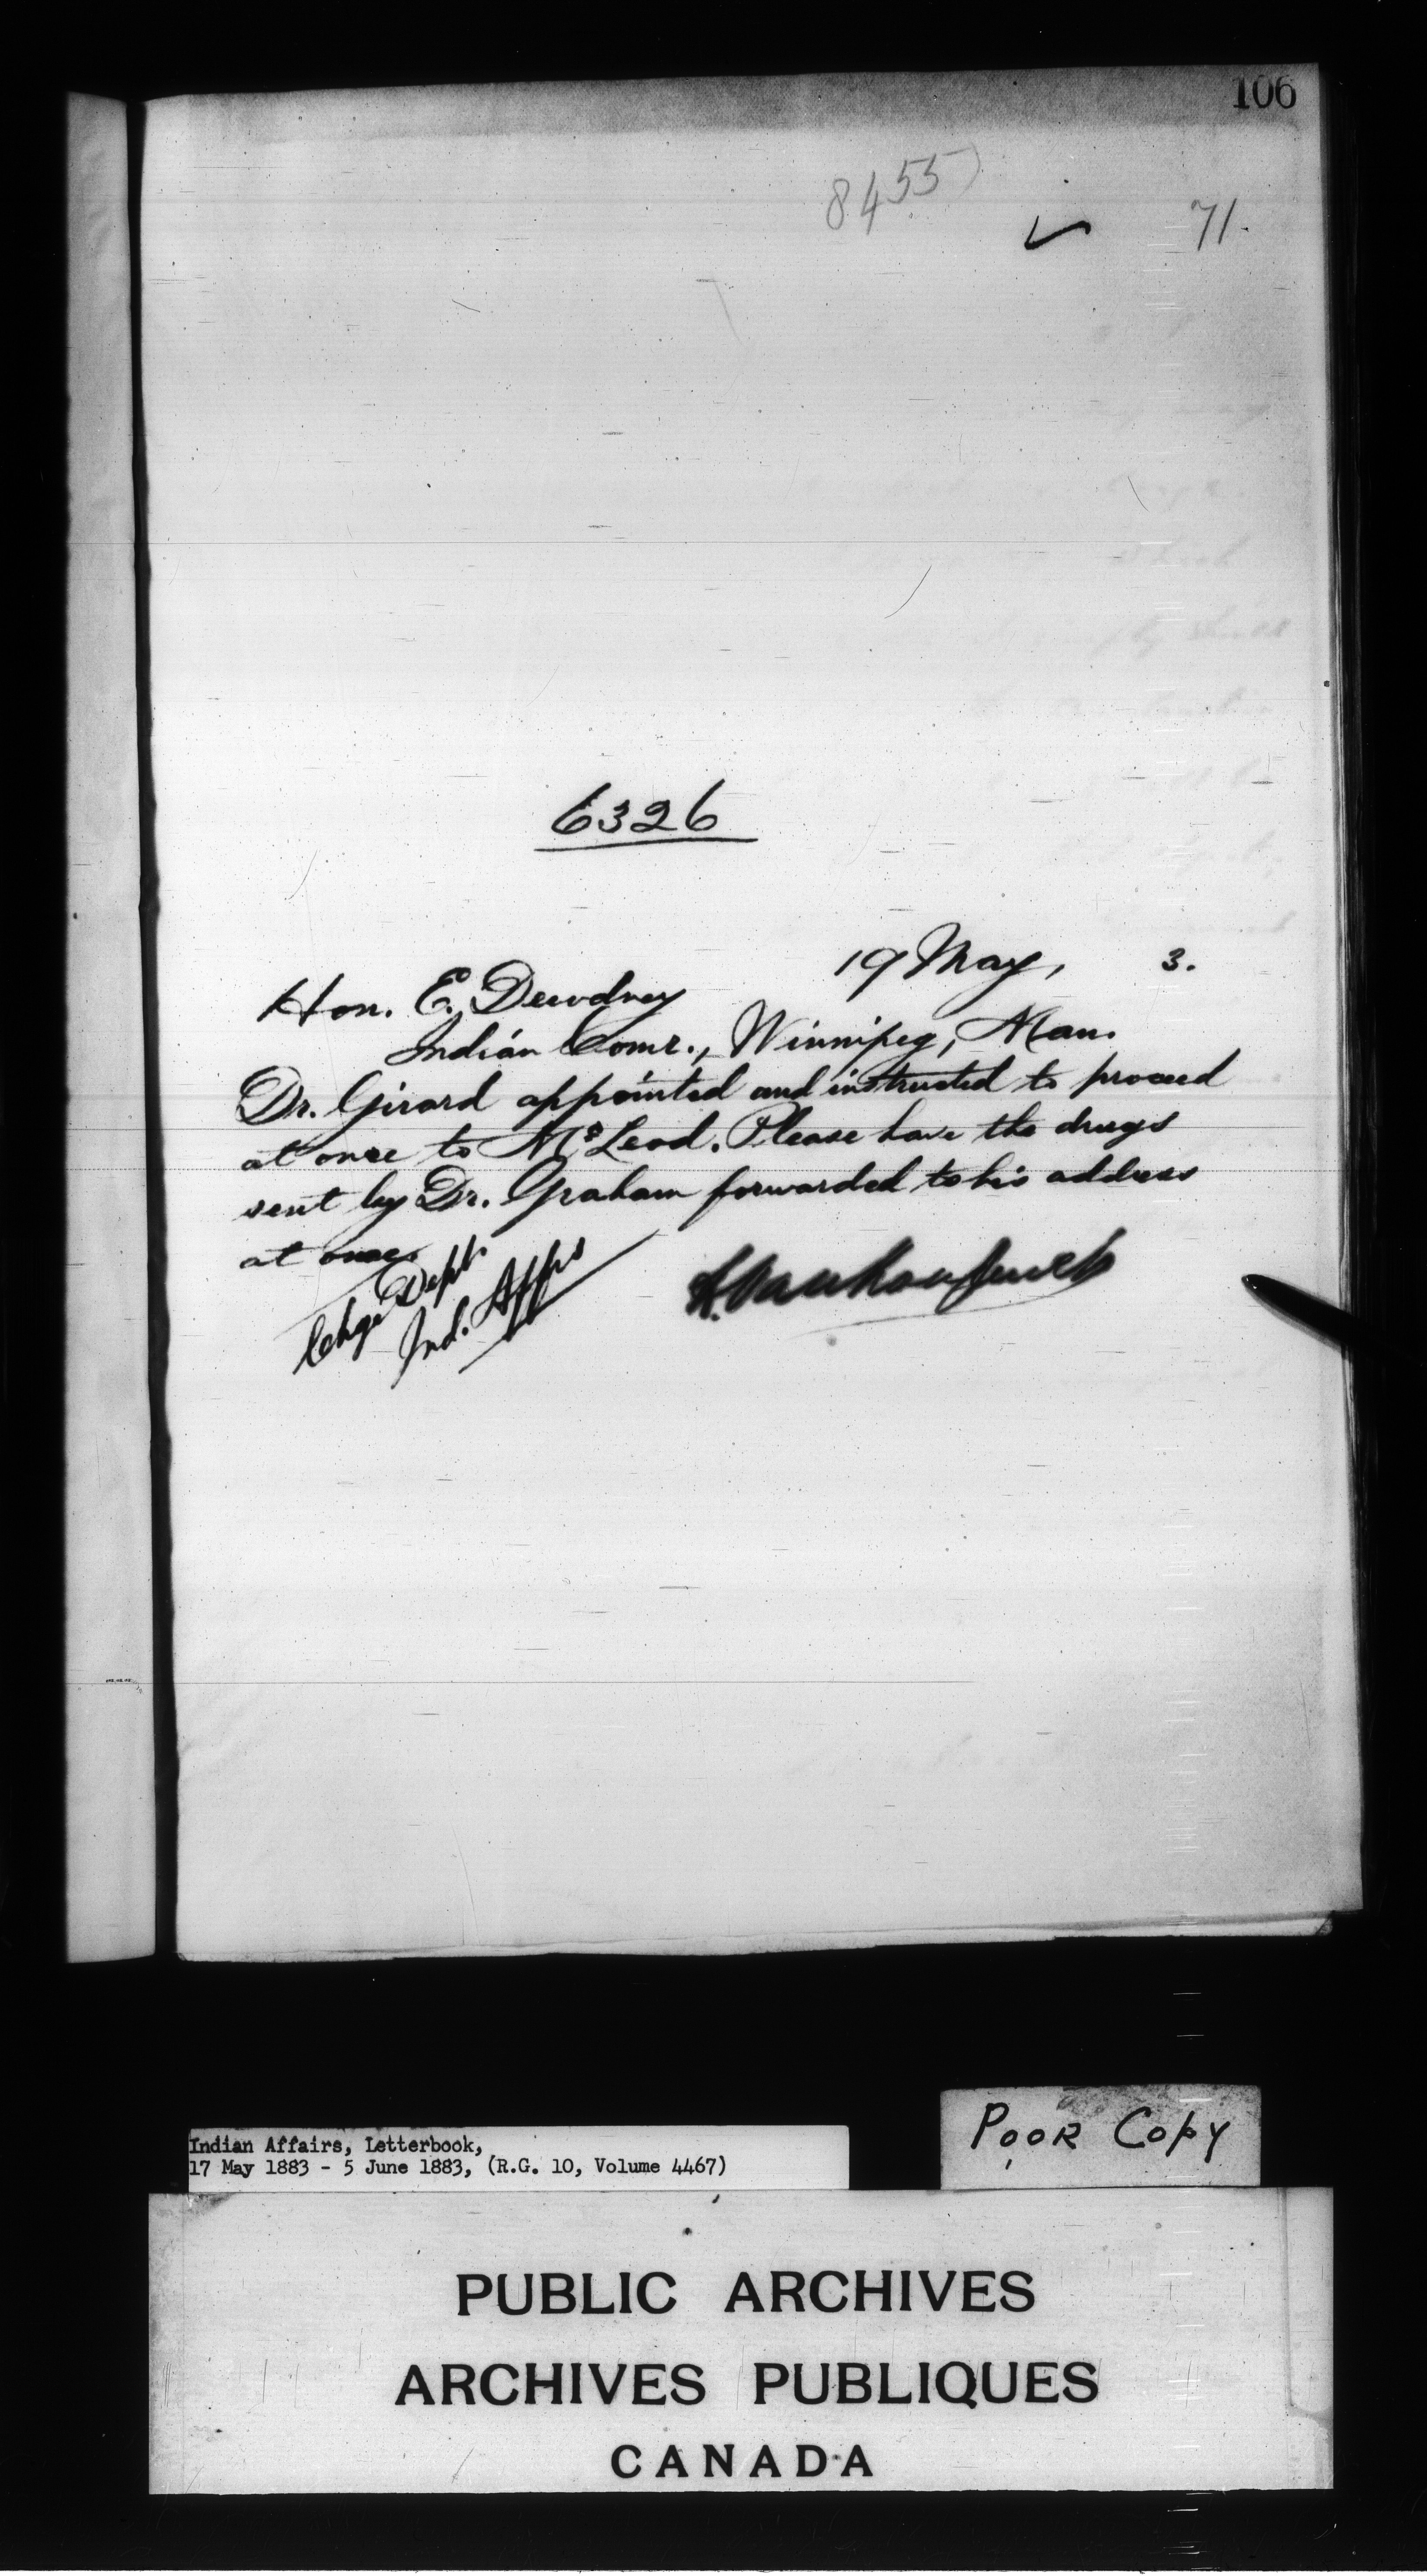 106
8455
71.
6326
19 May, 3.
Hon. E. Dewdney
Indian Comr., Winnipeg, Man.
Dr. Girard appointed and instructed to proceed
at once to McLeod. Please have the drugs
sent by Dr. Graham forwarded to his address
at once.
Chge Dept.
Ind. Affrs
L. Vankoughnet
Indian Affairs, Letterbook,
17 May 1883 - 5 June 1883, (R.G. 10, Volume 4467)
POOR COPY
PUBLIC ARCHIVES
ARCHIVES PUBLIQUES
CANADA